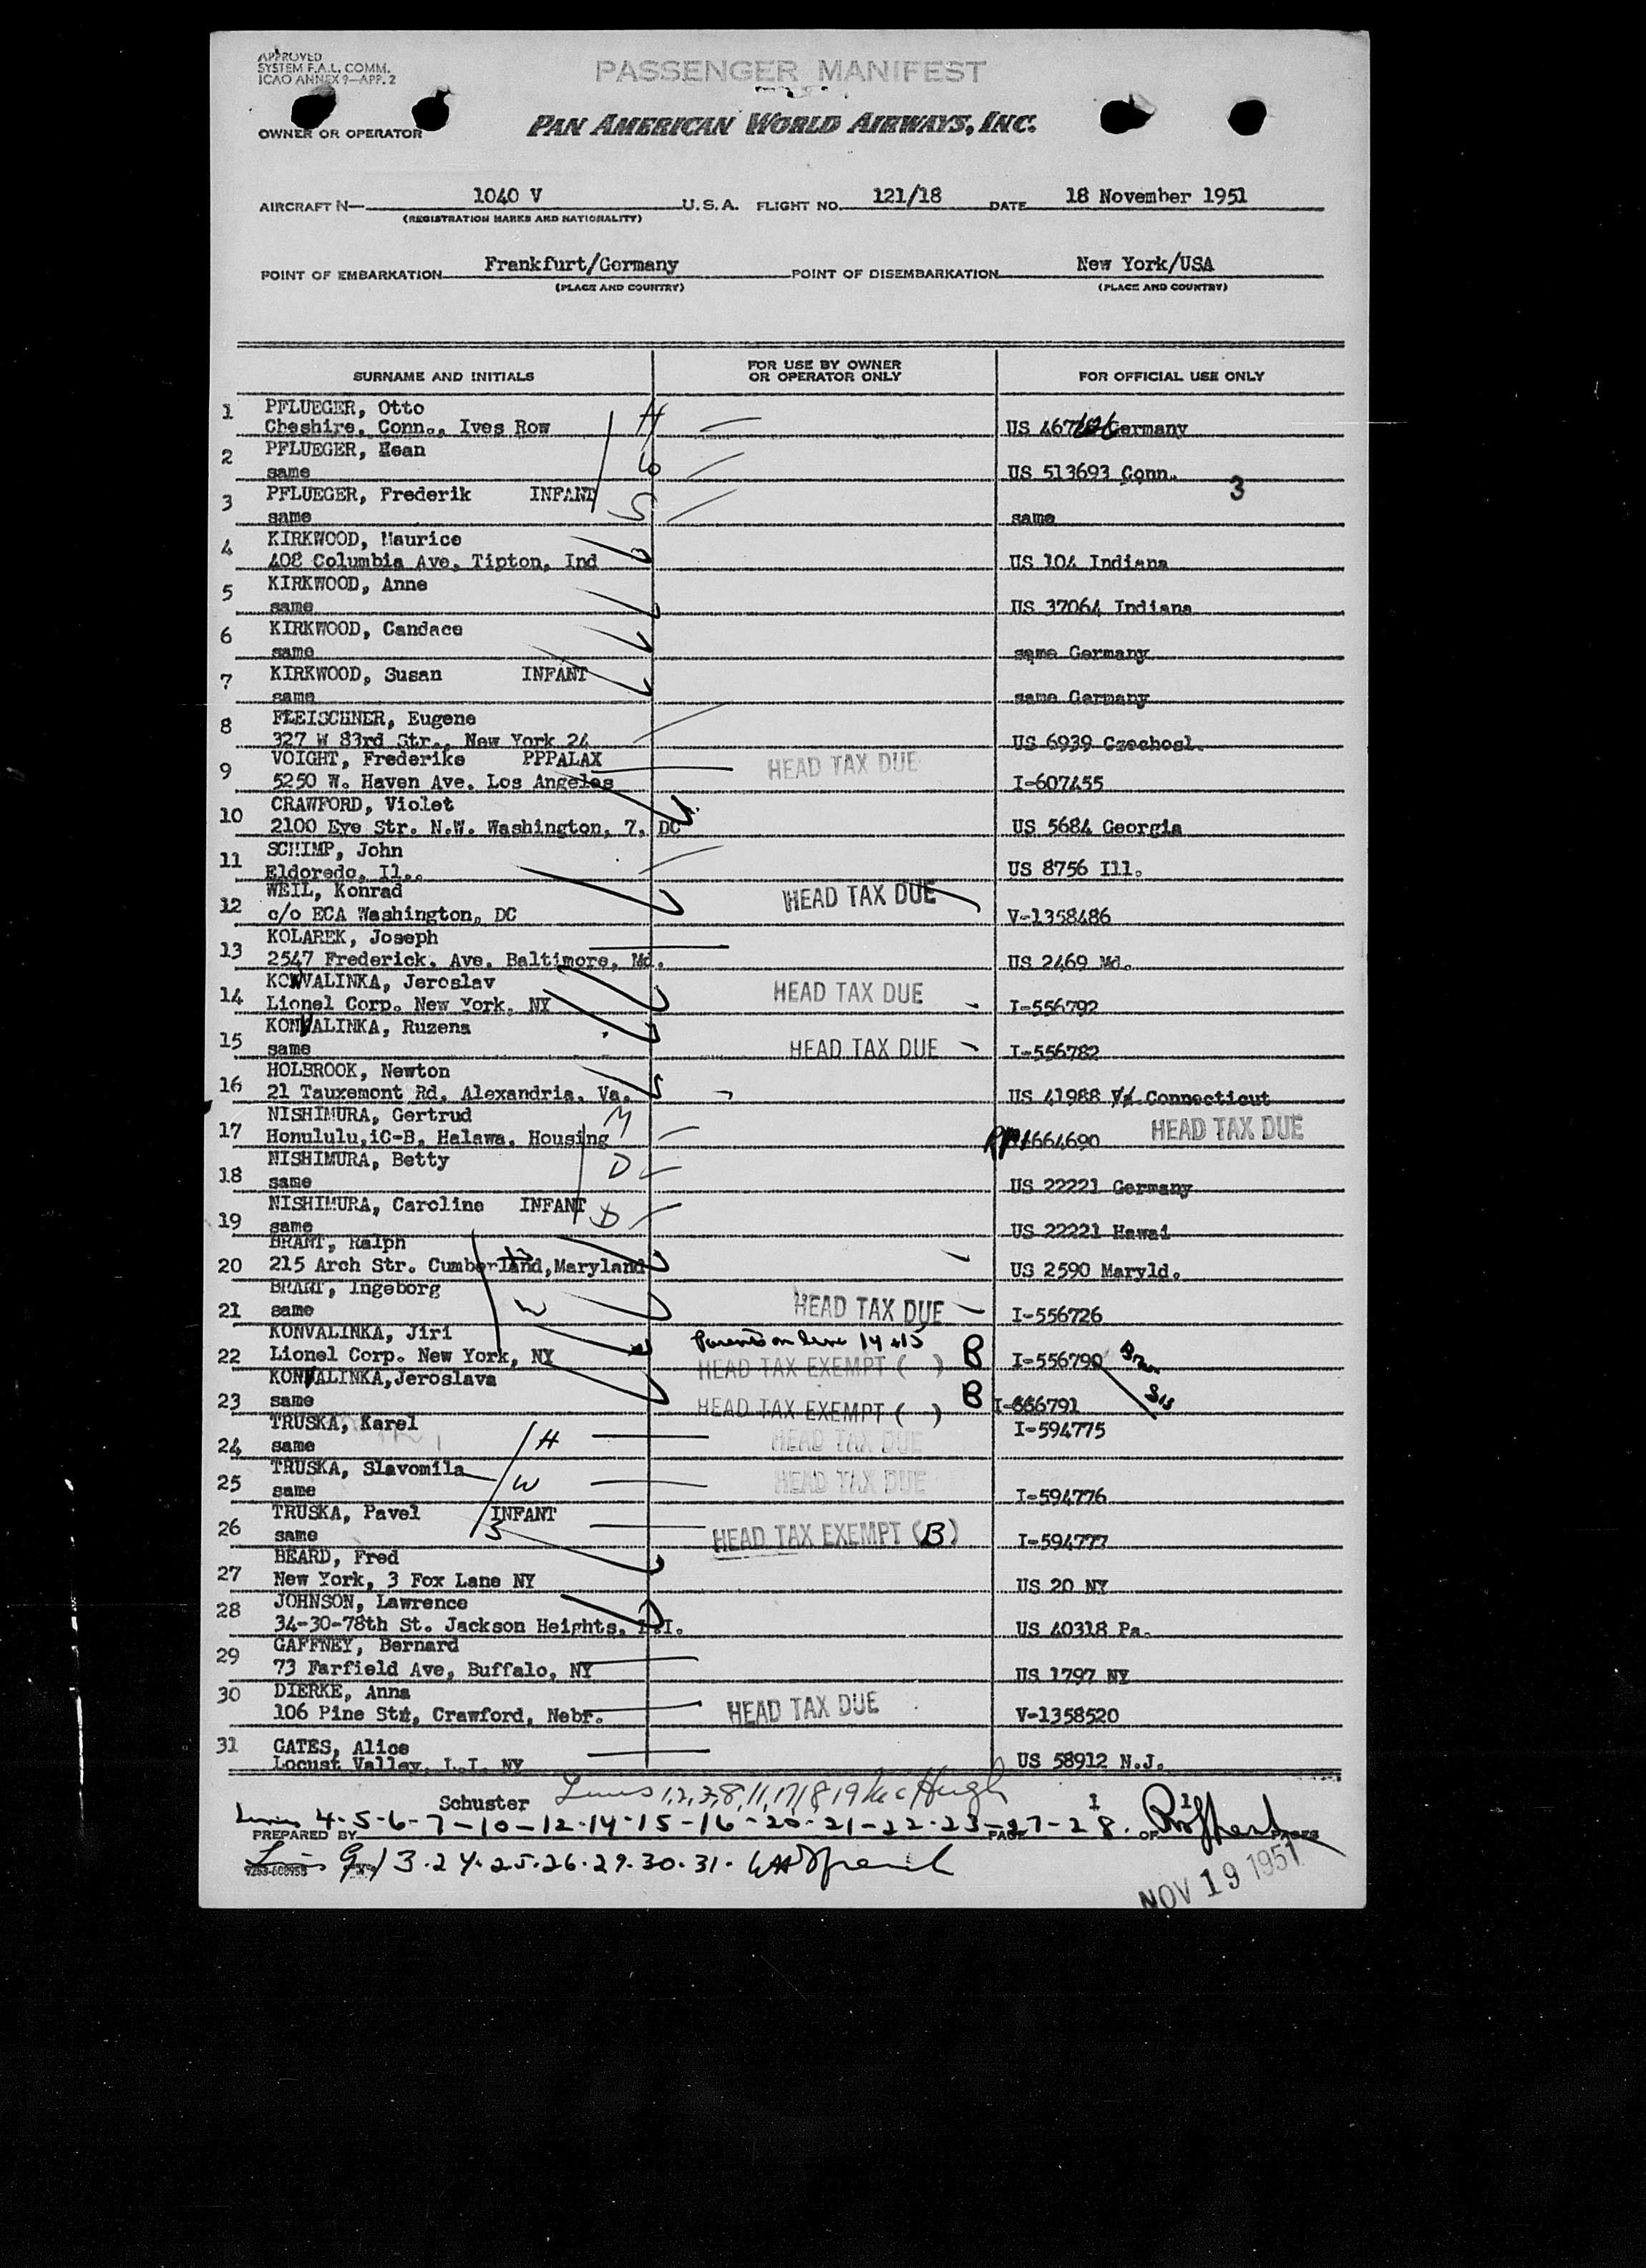 APPROVED
SYSTEM F.A.L. COMM.
ICAO ANNEX 9—APP. 2
PASSENGER MANIFEST
OWNER OR OPERATOR
PAN AMERICAN WORLD AIRWAYS, INC.
AIRCRAFT N— 1040 V U.S.A. FLIGHT NO. 121/18 DATE 18 November 1951
(REGISTRATION MARKS AND NATIONALITY)
POINT OF EMBARKATION Frankfurt/Germany POINT OF DISEMBARKATION New York/USA
(PLACE AND COUNTRY) (PLACE AND COUNTRY)
SURNAME AND INITIALS FOR USE BY OWNER OR OPERATOR ONLY FOR OFFICIAL USE ONLY
1 PFLUEGER, Otto H
Cheshire, Conn., Ives Row Germany
2 PFLUEGER, W
same US 513693 Conn.
3 PFLUEGER, Frederik INFANT S 3
same same
4 KIRKWOOD, Maurice
408 Columbia Ave, Tipton, Ind US 104 Indiana
5 KIRKWOOD, Anne
same US 37064 Indiana
6 KIRKWOOD, Candace
same same Germany
7 KIRKWOOD, Susan INFANT
same same Germany
8 FLEISCHNER, Eugene
327 W 83rd Str., New York 24 US 6939 Czechosl.
9 VOIGHT, Frederike PPPALAX HEAD TAX DUE
5250 W. Haven Ave. Los Angeles I-607455
10 CRAWFORD, Violet
2100 Eye Str. N.W. Washington, 7, DC US 5684 Georgia
11 SCHIMP, John
Eldoredo, Il.. US 8756 Ill.
12 WEIL, Konrad HEAD TAX DUE
c/o ECA Washington, DC V-1358486
13 KOLAREK, Joseph
2547 Frederick. Ave. Baltimore, Md. US 2469 Md.
14 KONVALINKA, Jeroslav HEAD TAX DUE
Lionel Corp. New York, NY I-556792
15 KONVALINKA, Ruzena HEAD TAX DUE
same I-556782
16 HOLBROOK, Newton
21 Tauxemont Rd. Alexandria, Va. US 41988 Va. Connecticut
17 NISHIMURA, Gertrud M HEAD TAX DUE
Honululu, iC-B, Halawa, Housing 664690
18 NISHIMURA, Betty D
same US 22221 Germany
19 NISHIMURA, Caroline INFANT D
same US 22221 Hawai
20 BRANT, Ralph H
215 Arch Str. Cumberland, Maryland US 2590 Maryld.
21 BRANT, Ingeborg W HEAD TAX DUE
same I-556726
22 KONVALINKA, Jiri Parents on line 14 & 15 B
Lionel Corp. New York, NY HEAD TAX EXEMPT ( ) I-556790 Bro
23 KONVALINKA, Jeroslava B Sis
same HEAD TAX EXEMPT ( ) I-556791
24 TRUSKA, Karel H I-594775
same HEAD TAX DUE
25 TRUSKA, Slavomila W HEAD TAX DUE
same I-594776
26 TRUSKA, Pavel INFANT S
same HEAD TAX EXEMPT (B) I-594777
27 BEARD, Fred
New York, 3 Fox Lane NY US 20 NY
28 JOHNSON, Lawrence
34-30-78th St. Jackson Heights, L.I. US 40318 Pa.
29 GAFFNEY, Bernard
73 Farfield Ave, Buffalo, NY US 1797 NY
30 DIERKE, Anna HEAD TAX DUE
106 Pine Str, Crawford, Nebr. V-1358520
31 GATES, Alice
Locust Valley, L.I. NY US 58912 N.J.
Schuster Lines 1,2,3,8,11,17,18,19 McHugh
Lines 4-5-6-7-10-12-14-15-16-20-21-22-23-27-28.
PREPARED BY PAGE 1 OF 1 PAGES
Lines 9, 13.24.25.26.29.30.31.
NOV 19 1951